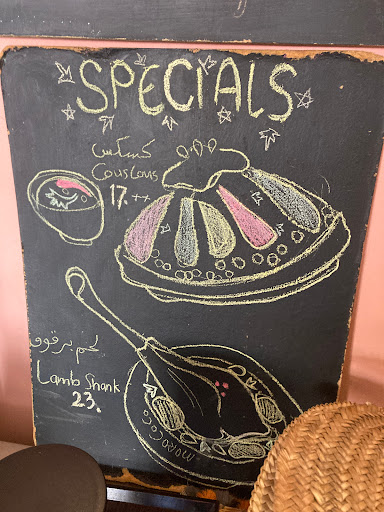 SPECIALS
كسكس
Couscous
17.++
لحم برقوق
Lamb Shank
23.
MOROCOCO